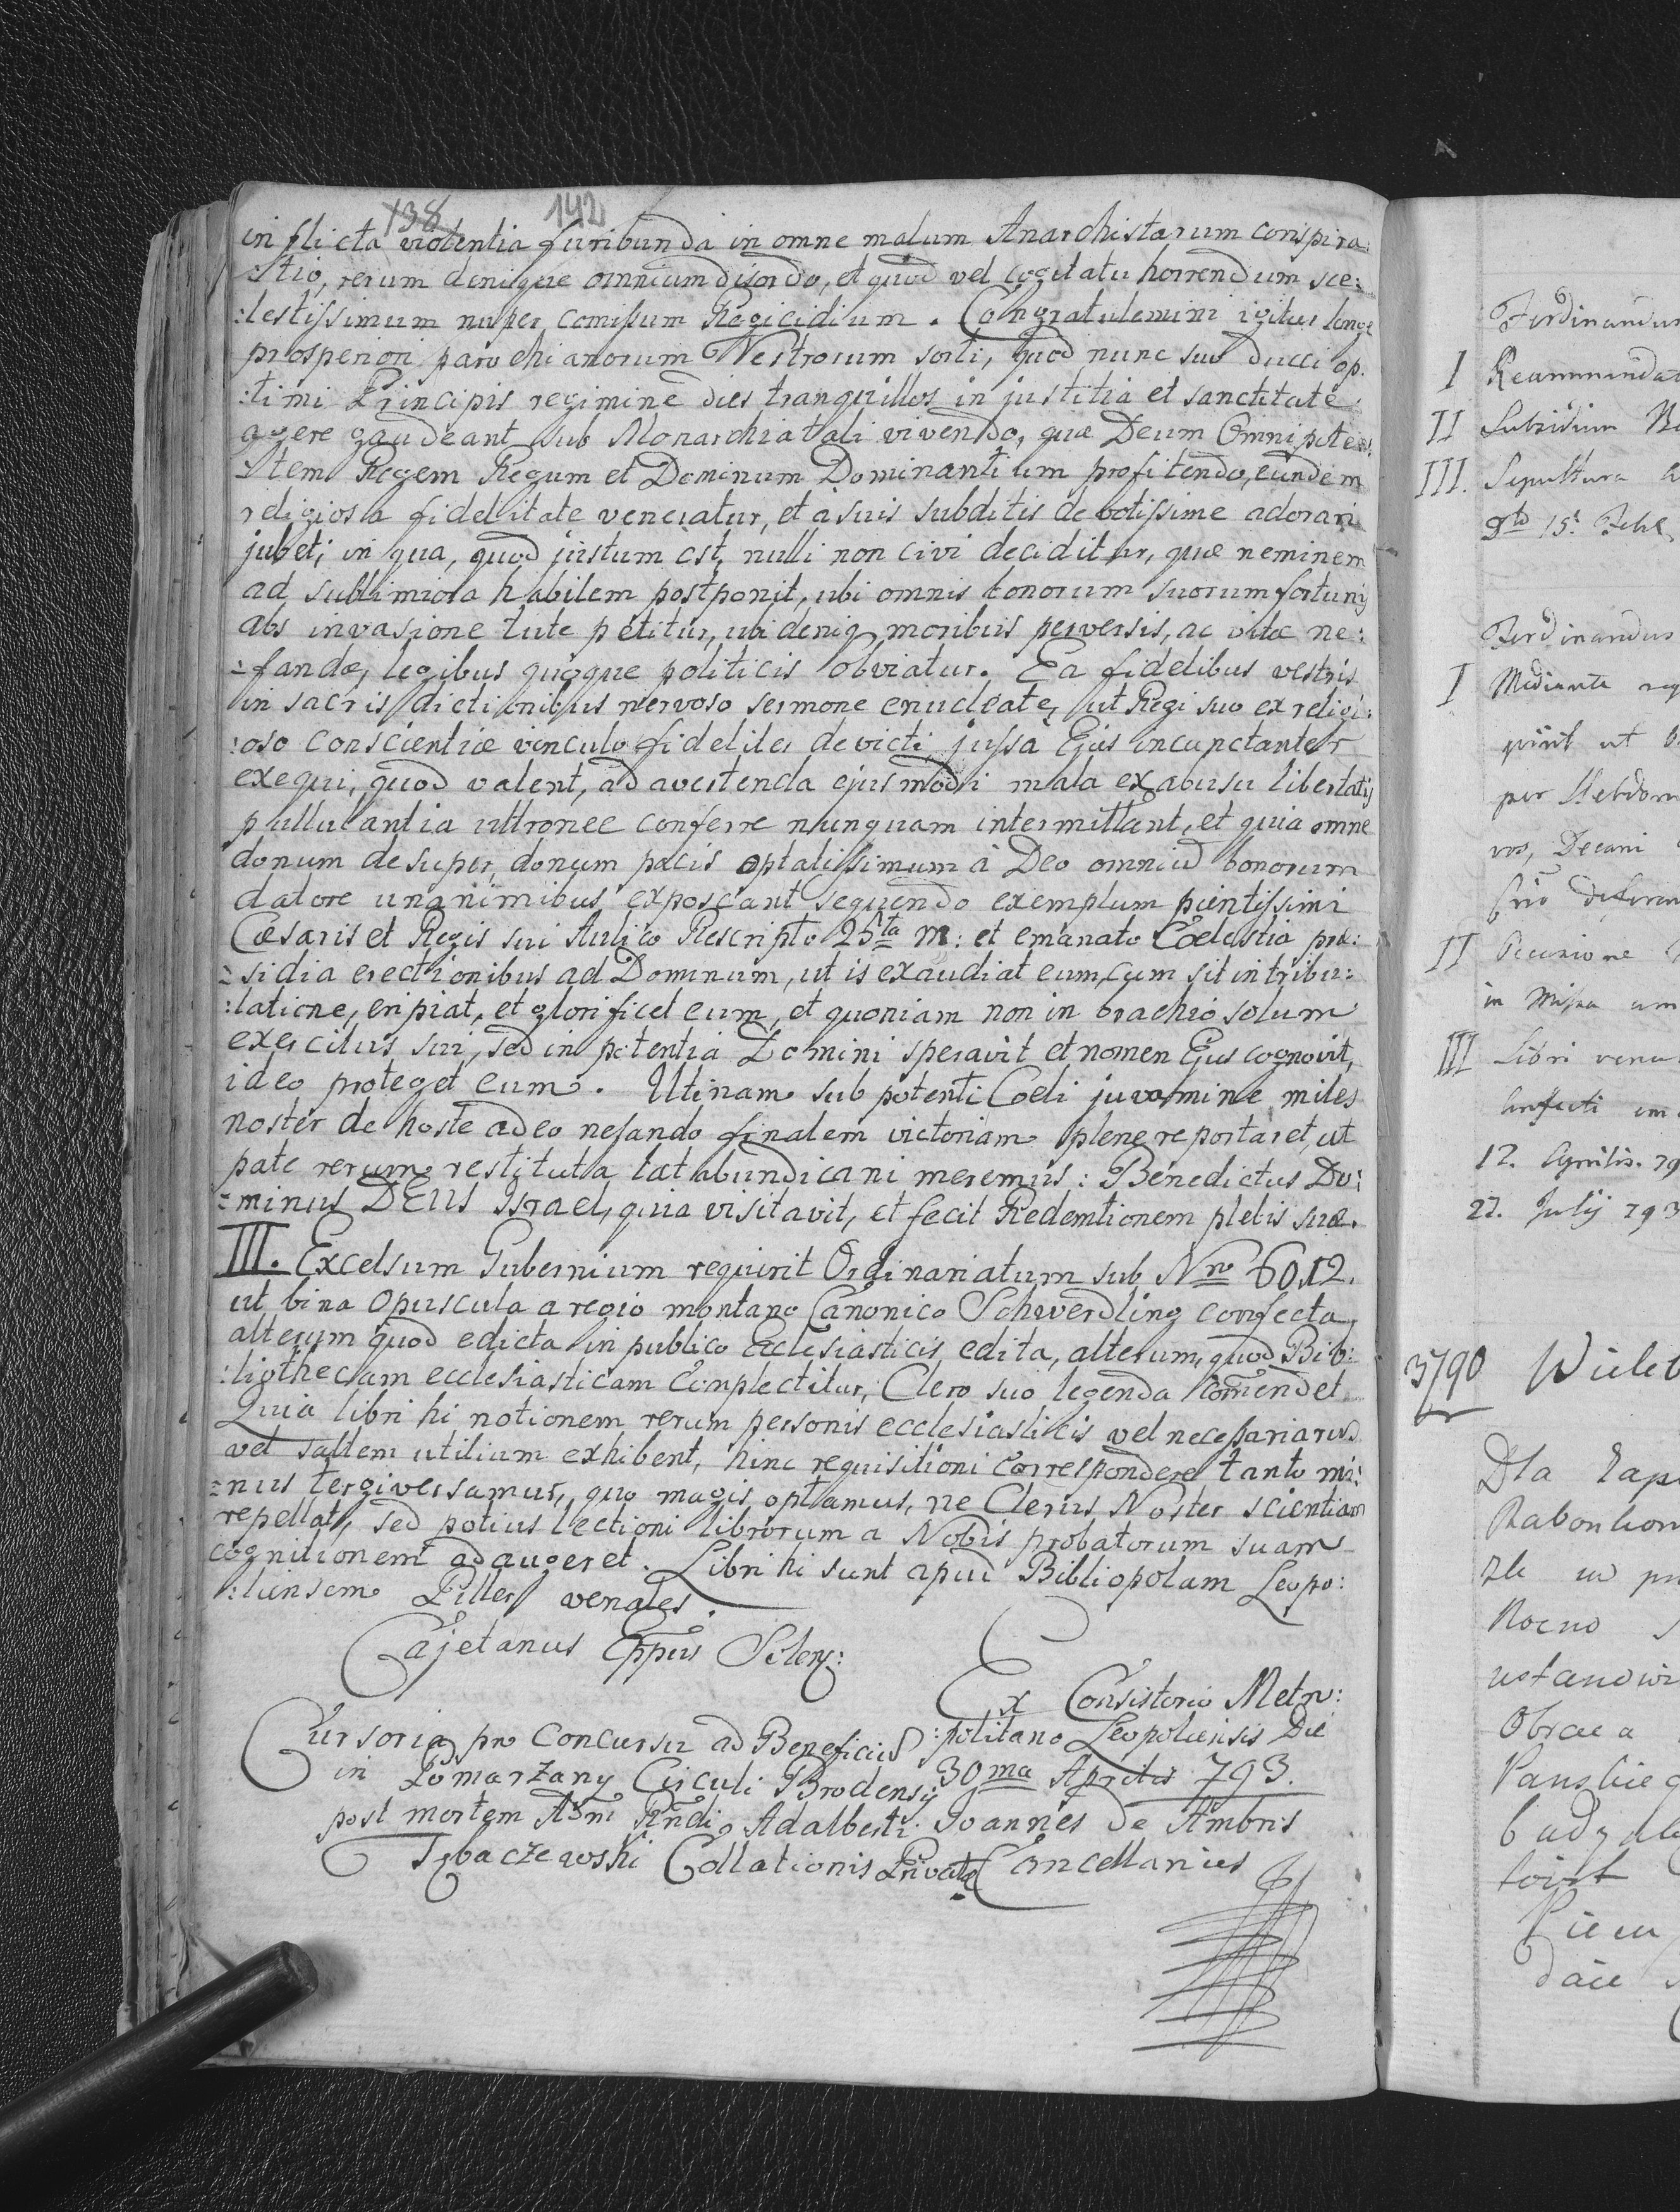 138 142
inflicta violentia furibunda in omne malum Anarchistarum conspira:
:tio, rerum denique omnium disordo, et quod vel cogitatu horrendum sce:
:lestissimum nuper comissum Regicidium. Congratulemini igitur longe
prosperiori parochianorum Vestrorum sorti, quod nunc sub ducci op:
:timi Principis regimine dies tranquillos in justitia et sanctitate
agere gaudeant sub Monarchia tali vivendo, quæ Deum Omnipoten:
:tem Regem Regum et Dominum Dominantium profitendo, eundem
religiosa fidelitate veneratur, et à suis subditis devotissime adorari
jubet; in qua, quod justum est, nulli non civi deciditur, quæ neminem
ad sublimiora habilem postponit, ubi omnis bonorum suorum fortunis
abs invasione tute petitur, ubi deniq moribus perversis, ac vitæ ne:
:fandæ, legibus quoque politicis obviatur. Ea fidelibus vestris
in sacris dictionibus nervoso sermone enucleate, ut Regi suo ex religi:
:oso conscientiæ vinculo fideliter devicti jussa Ejus incunctanter
exequi, quod valent, ad avertenda ejusmodi mala ex abusu libertatis
pullulantia ultronee conferre nunquam intermittant, et quia omne
donum desuper, donum pacis optatissimum à Deo omniū bonorum
datore unanimibus exposcant sequendo exemplum pientissimi
Cæsaris et Regis sui Aulico Rescripto 25ta m: et emanato Coelestia præ:
:sidia erectionibus ad Dominum, ut is exaudiat eum, cum sit in tribu:
:latione, eripiat, et glorificet eum, et quoniam non in brachio solum
exercitus sui, sed in potentia Domini speravit et nomen Ejus cognovit,
ideo proteget eum. Utinam sub potenti Coeli juvamine miles
noster de hoste adeo nefando finalem victoriam plene reportaret, ut
pate rerum restituta lætabundi cani meremus: Benedictus Do:
:minus DEUS Israel, quia visitavit, et fecit Redemtionem plebis suæ.
III. Excelsum Gubernium requirit Ordinariatum sub Nro 6012.
ut bina Opuscula a regio montano Canonico Schwerdling confecta,
alterum quod edicta in publico Ecclesiasticis edita, alterum, quod Bib:
:liothecam ecclesiasticam complectitur, Clero suo legenda comendet.
Quia libri hi notionem rerum personis ecclesiasticis vel necessariarū
vel saltem utilium exhibent, hinc requisitioni correspondere tanto mi:
:nus tergiversamur, quo magis optamus, ne Clerus Noster scientiam
repellat, sed potius lectioni librorum a Nobis probatorum suam
cognitionem adaugeret. Libri hi sunt apud Bibliopolam Leopo:
:liensem Piller venales.
Cajetanus Eppus
Ex Consistorio Metro:
:politano Leopoliensis Die
30ma Aprilis 793.
Joannes De Ambris
Cancellarius
Cursoria pro Concursu ad Beneficiū
in Pomarzany Circuli Brodensis
post mortem Adm Rndi Adalberti
Collationis Privatæ
Ferdinandus
I
II Subsidium
III. Sepultura
15. Feb
Ferdinandus
I Mediante
ut
per Hebdom
vos, Decani
II
in Missa
III Libri
12. Aprilis. 79
27. July 793
3790
Dla